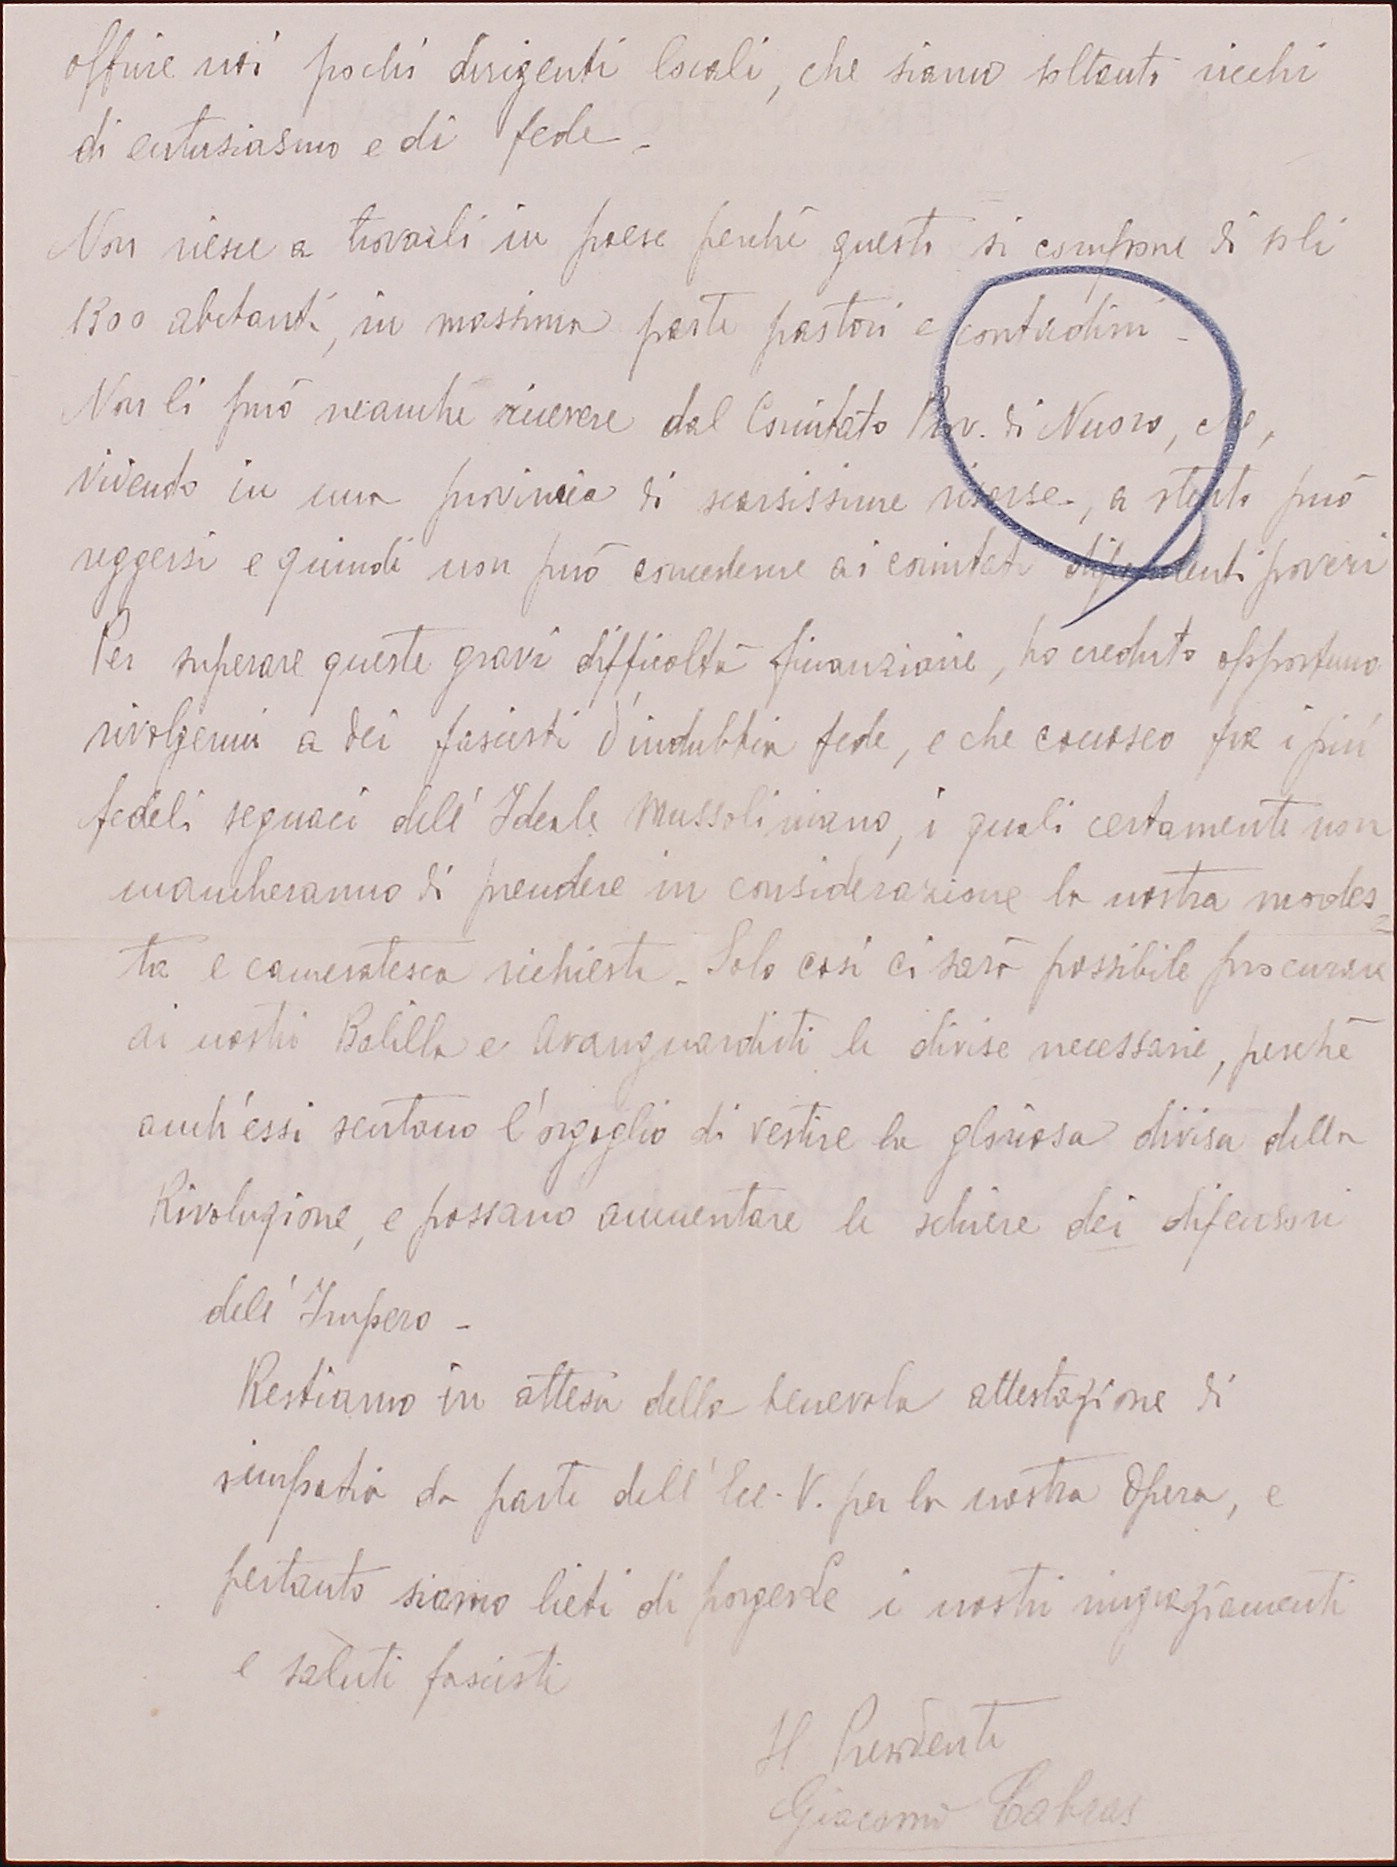 offrire noi pochi dirigenti locali, che siamo soltanto ricchi
di entusiasmo e di fede -
Non riesce a trovarli in paese perchè questo si compone di soli
1300 abitanti, in massima parte pastori e contadini -
Non li può neanche ricevere dal Comitato Prov. di Nuoro, che,
vivendo in una provincia di scarsissime risorse, a stento può
reggersi e quindi non può concederne ai comitati dipendenti poveri
Per superare queste gravi difficoltà finanziarie, ho creduto opportuno
rivolgermi a dei fascisti d'indubbia fede, e che conosco fra i più
fedeli seguaci dell'Ideale Mussoliniano, i quali certamente non
mancheranno di prendere in considerazione la nostra modes=
ta e cameratesca richiesta - Solo così ci sarà possibile procurare
ai nostri Balilla e Avanguardisti le divise necessarie, perchè
anch'essi sentano l'orgoglio di vestire la gloriosa divisa della
Rivoluzione, e possano aumentare le schiere dei difensori
dell'Impero -
Restiamo in attesa della benevola attestazione di
simpatia da parte dell'Ecc. V. per la nostra Opera, e
pertanto siamo lieti di porgerLe i nostri ringraziamenti
e saluti fascisti
Il Presidente
Giacomo Cabras